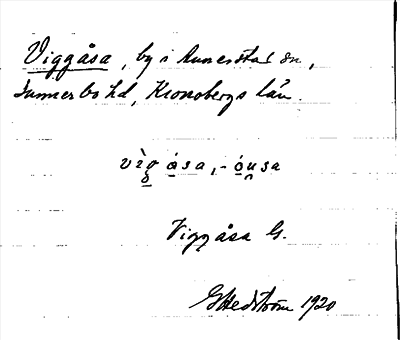 Viggåsa, by i Annerstad sn,
Sunnerbo hd, Kronobergs län.
vìg ása, - óusa
Viggåsa G.
G Hedström 1920